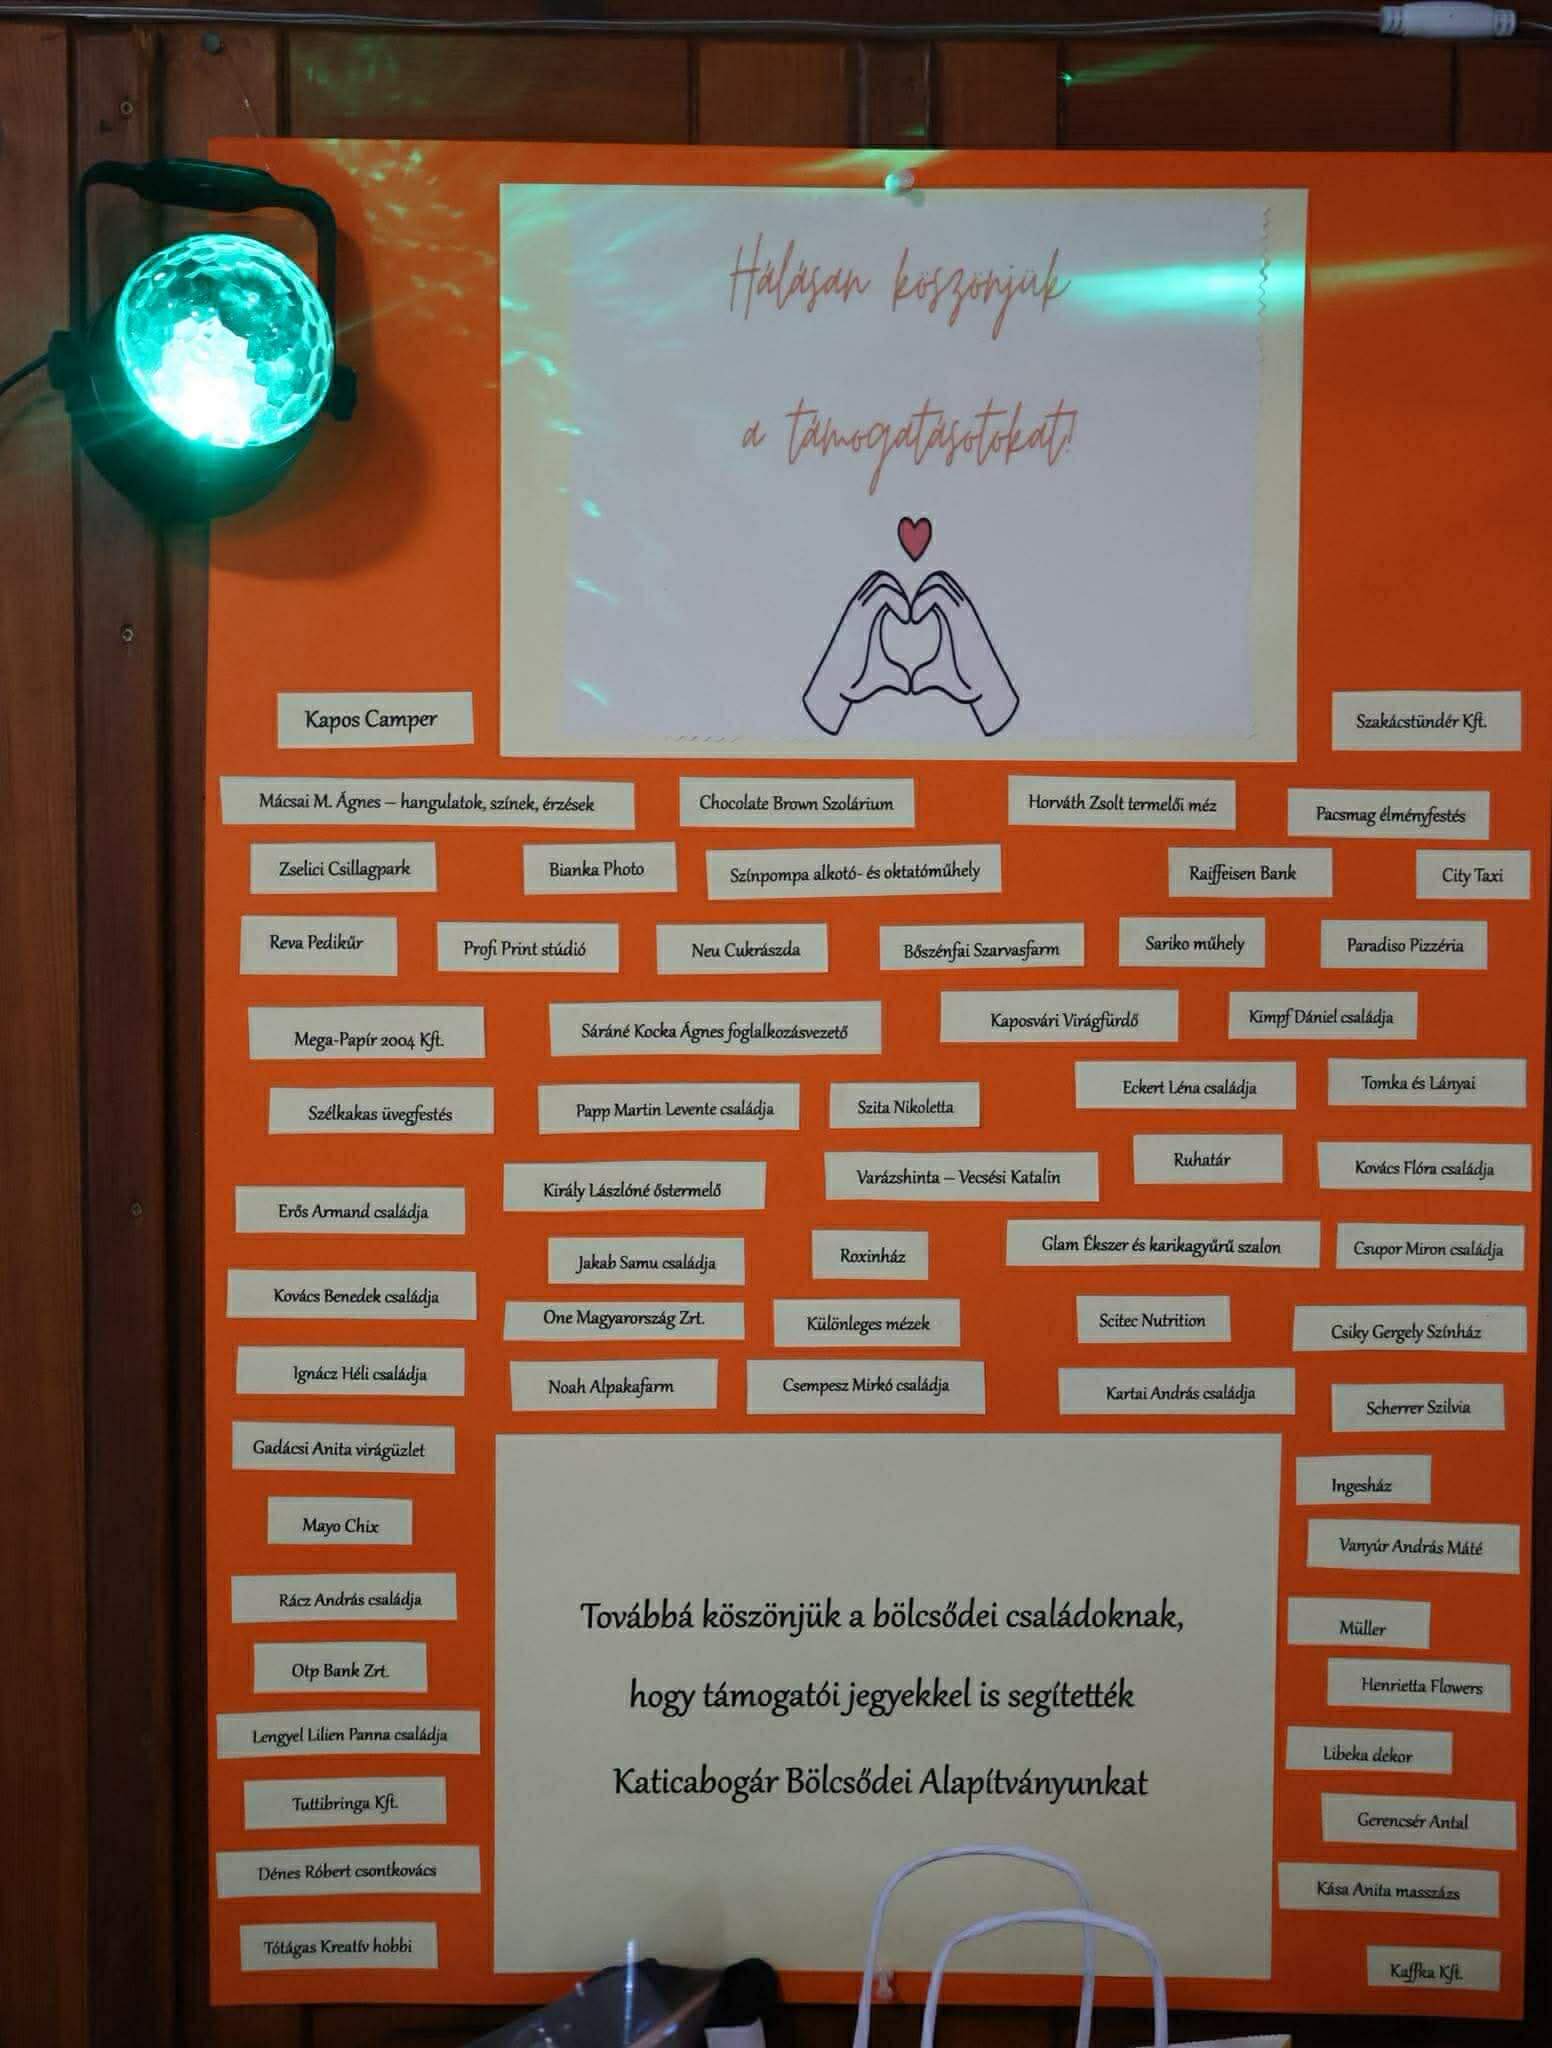 Hálásan köszönjük
a támogatásotokat!
Kapos Camper
Szakácstündér Kft.
Mácsai M. Ágnes – hangulatok, színek, érzések
Chocolate Brown Szolárium
Horváth Zsolt termelői méz
Pacsmag élményfestés
Zselici Csillagpark
Bianka Photo
Színpompa alkotó- és oktatóműhely
Raiffeisen Bank
City Taxi
Reva Pedikűr
Profi Print stúdió
Neu Cukrászda
Bőszénfai Szarvasfarm
Sariko műhely
Paradiso Pizzéria
Mega-Papír 2004 Kft.
Sáráné Kocka Ágnes foglalkozásvezető
Kaposvári Virágfürdő
Kimpf Dániel családja
Szélkakas üvegfestés
Papp Martin Levente családja
Szita Nikoletta
Eckert Léna családja
Tomka és Lányai
Erős Armand családja
Király Lászlóné őstermelő
Varázshinta – Vecsési Katalin
Ruhatár
Kovács Flóra családja
Jakab Samu családja
Roxinház
Glam Ékszer és karikagyűrű szalon
Csupor Miron családja
Kovács Benedek családja
One Magyarország Zrt.
Különleges mézek
Scitec Nutrition
Csiky Gergely Színház
Ignácz Héli családja
Noah Alpakafarm
Csempesz Mirkó családja
Kartai András családja
Scherrer Szilvia
Gadácsi Anita virágüzlet
Mayo Chix
Rácz András családja
Otp Bank Zrt.
Lengyel Lilien Panna családja
Tuttibringa Kft.
Dénes Róbert csontkovács
Tótágas Kreatív hobbi
Továbbá köszönjük a bölcsődei családoknak,
hogy támogatói jegyekkel is segítették
Katicabogár Bölcsődei Alapítványunkat
Ingesház
Vanyúr András Máté
Müller
Henrietta Flowers
Libeka dekor
Gerencsér Antal
Kása Anita masszázs
Kaffka Kft.